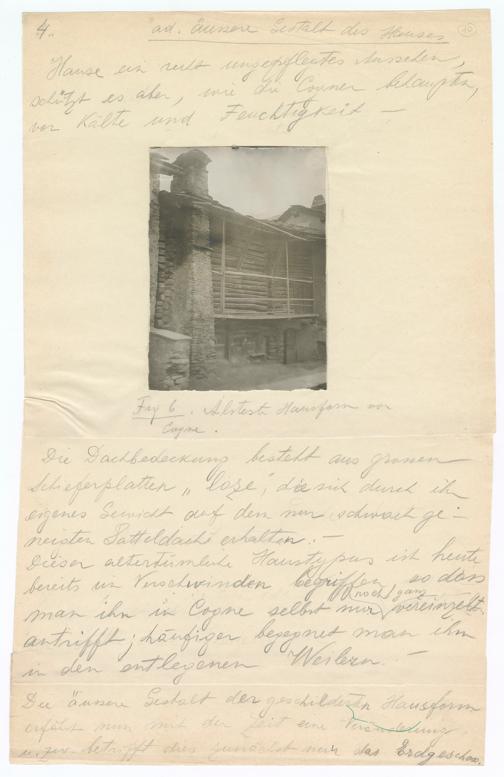 4. "ad. äussere Gestalt des Hauses 10
Hause ein recht ungepflegtes Aussehen,
schützt es aber, wie die Cogner behaupten,
vor Kälte und Feuchtigkeit —
Fig 6. Älteste Hausform von
Cogne.
Die Dachbedeckung besteht aus grossen
Schieferplatten „loze", die sich durch ihr
eigenes Gewicht auf den nur schwach ge-
neigten Satteldache erhalten. —
Dieser altertümliche Haustypus ist heute
bereits im Verschwinden begriffen, so dass
man ihn in Cogne selbst nur noch ganz vereinzelt
antrifft; häufiger begegnet man ihm
in den entlegenen Weilern. —
Die äussere Gestalt der geschilderten Hausform
erfährt nun mit der Zeit eine Veränderung,
u. zw. betrifft dies zunächst nur das Erdgeschoss,